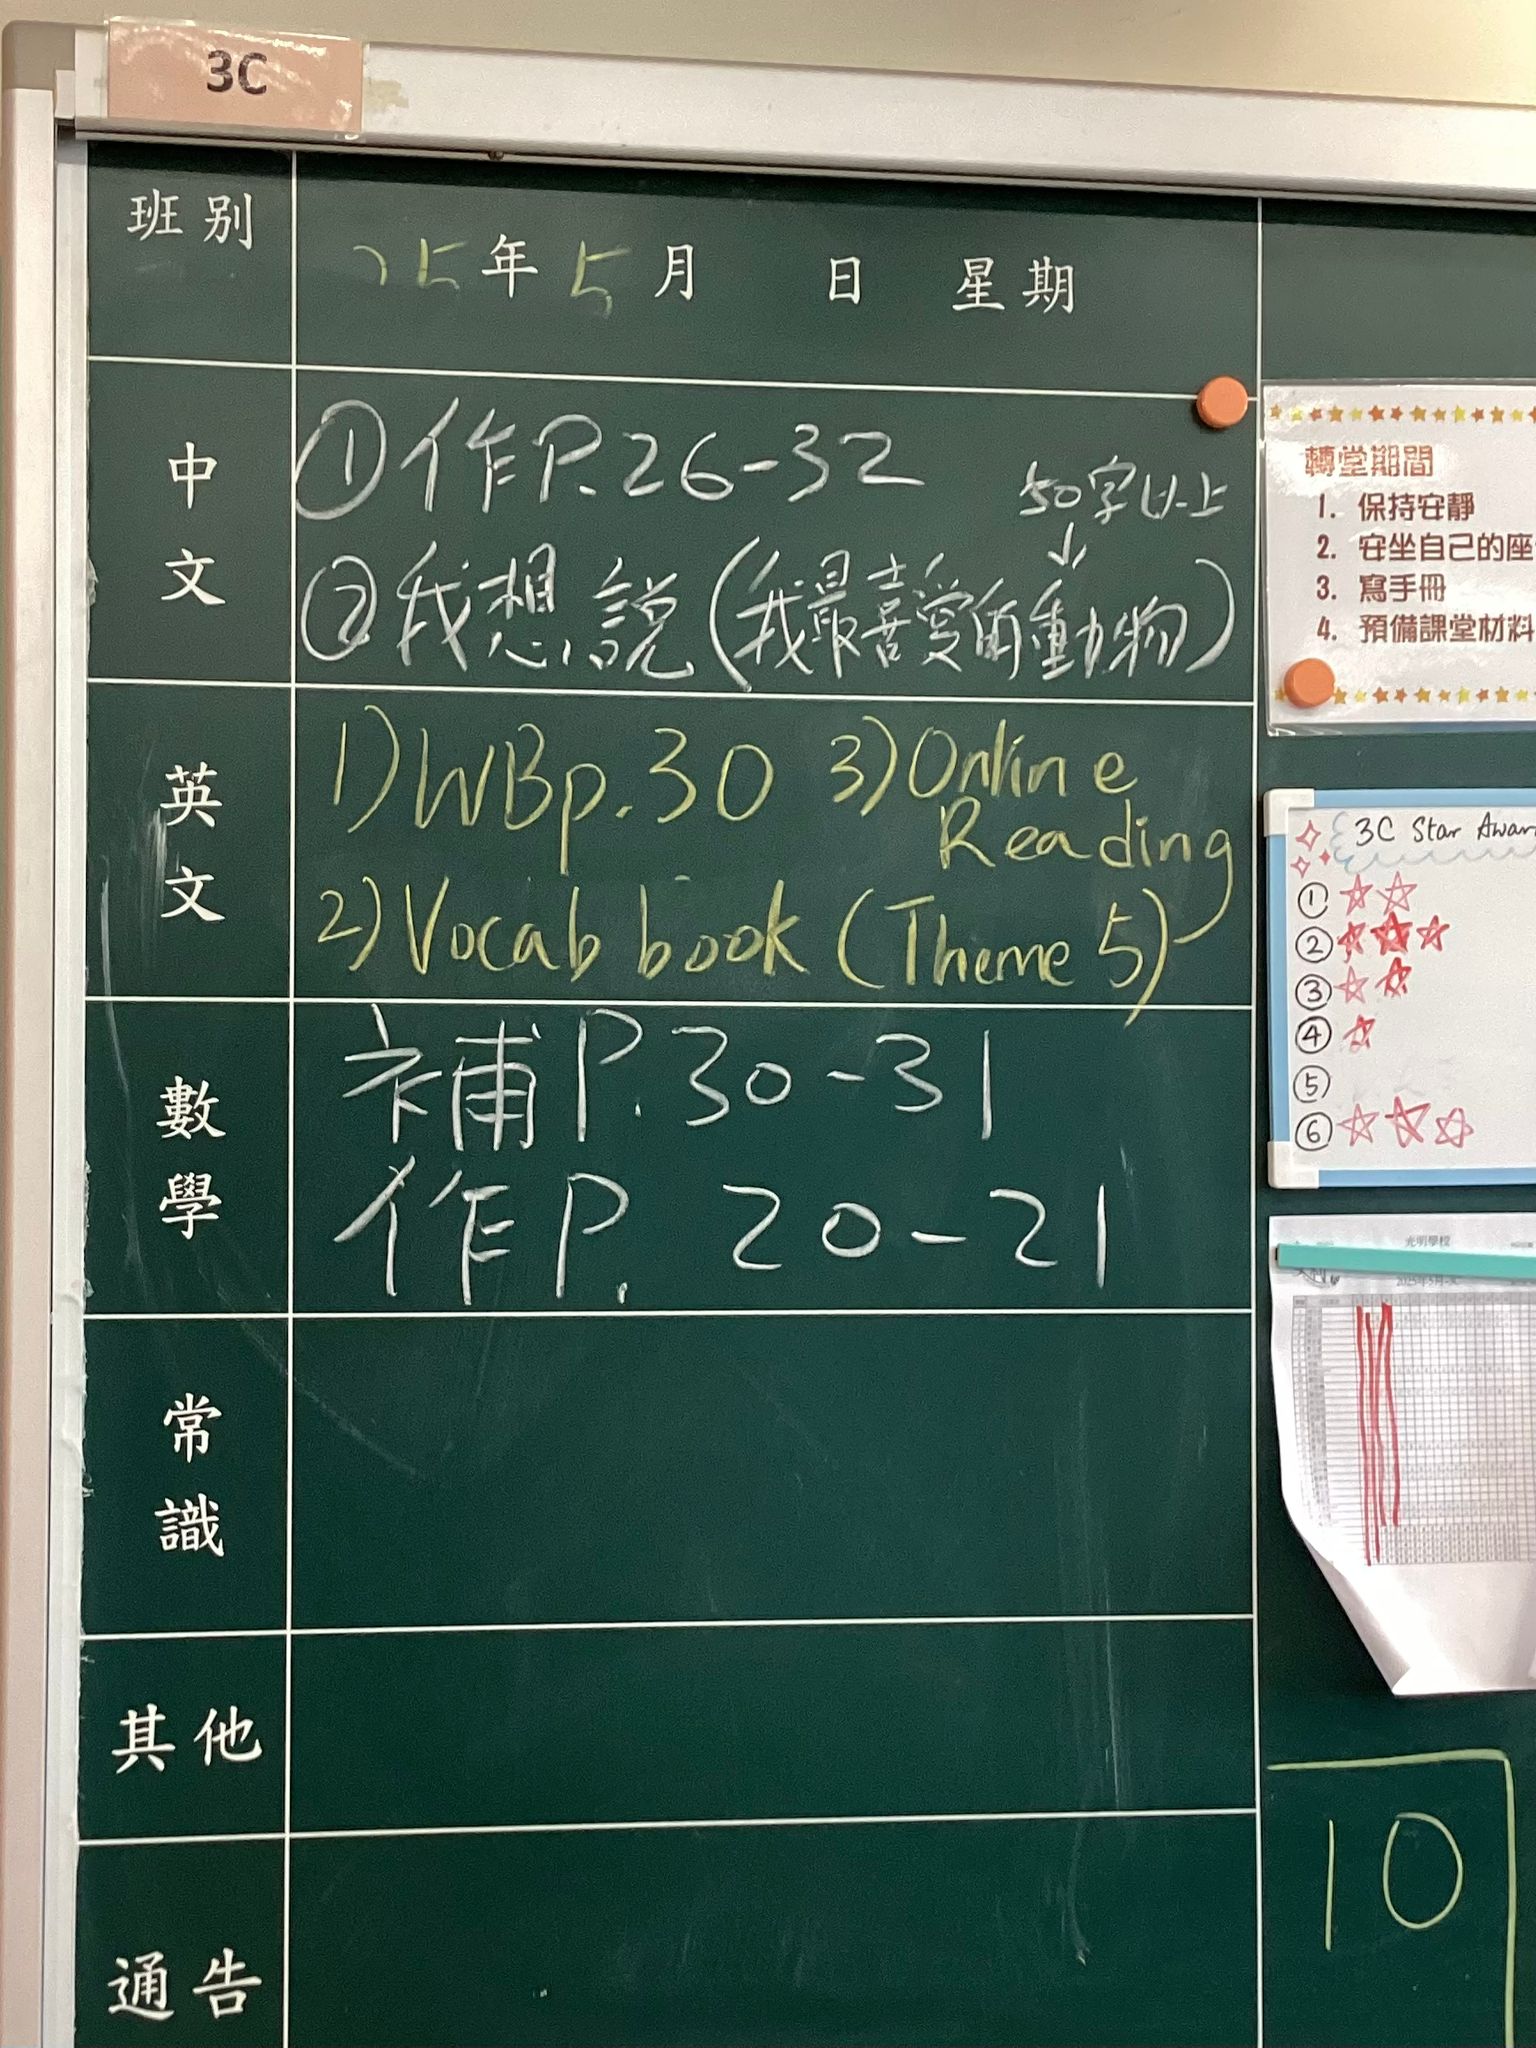 3C
班別
25年5月 日 星期
中文
①作P.26-32
50字以上
↓
②我想說(我最喜愛的動物)
英文
1)WBp.30
2)Vocab book (Theme 5)
3)Online
Reading
數學
補P.30-31
作P. 20-21
常識
其他
通告
轉堂期間
1. 保持安靜
2. 安坐自己的座
3. 寫手冊
4. 預備課堂材料
3C Star Awar
①
②
③
④
⑤
⑥
光明學校
10